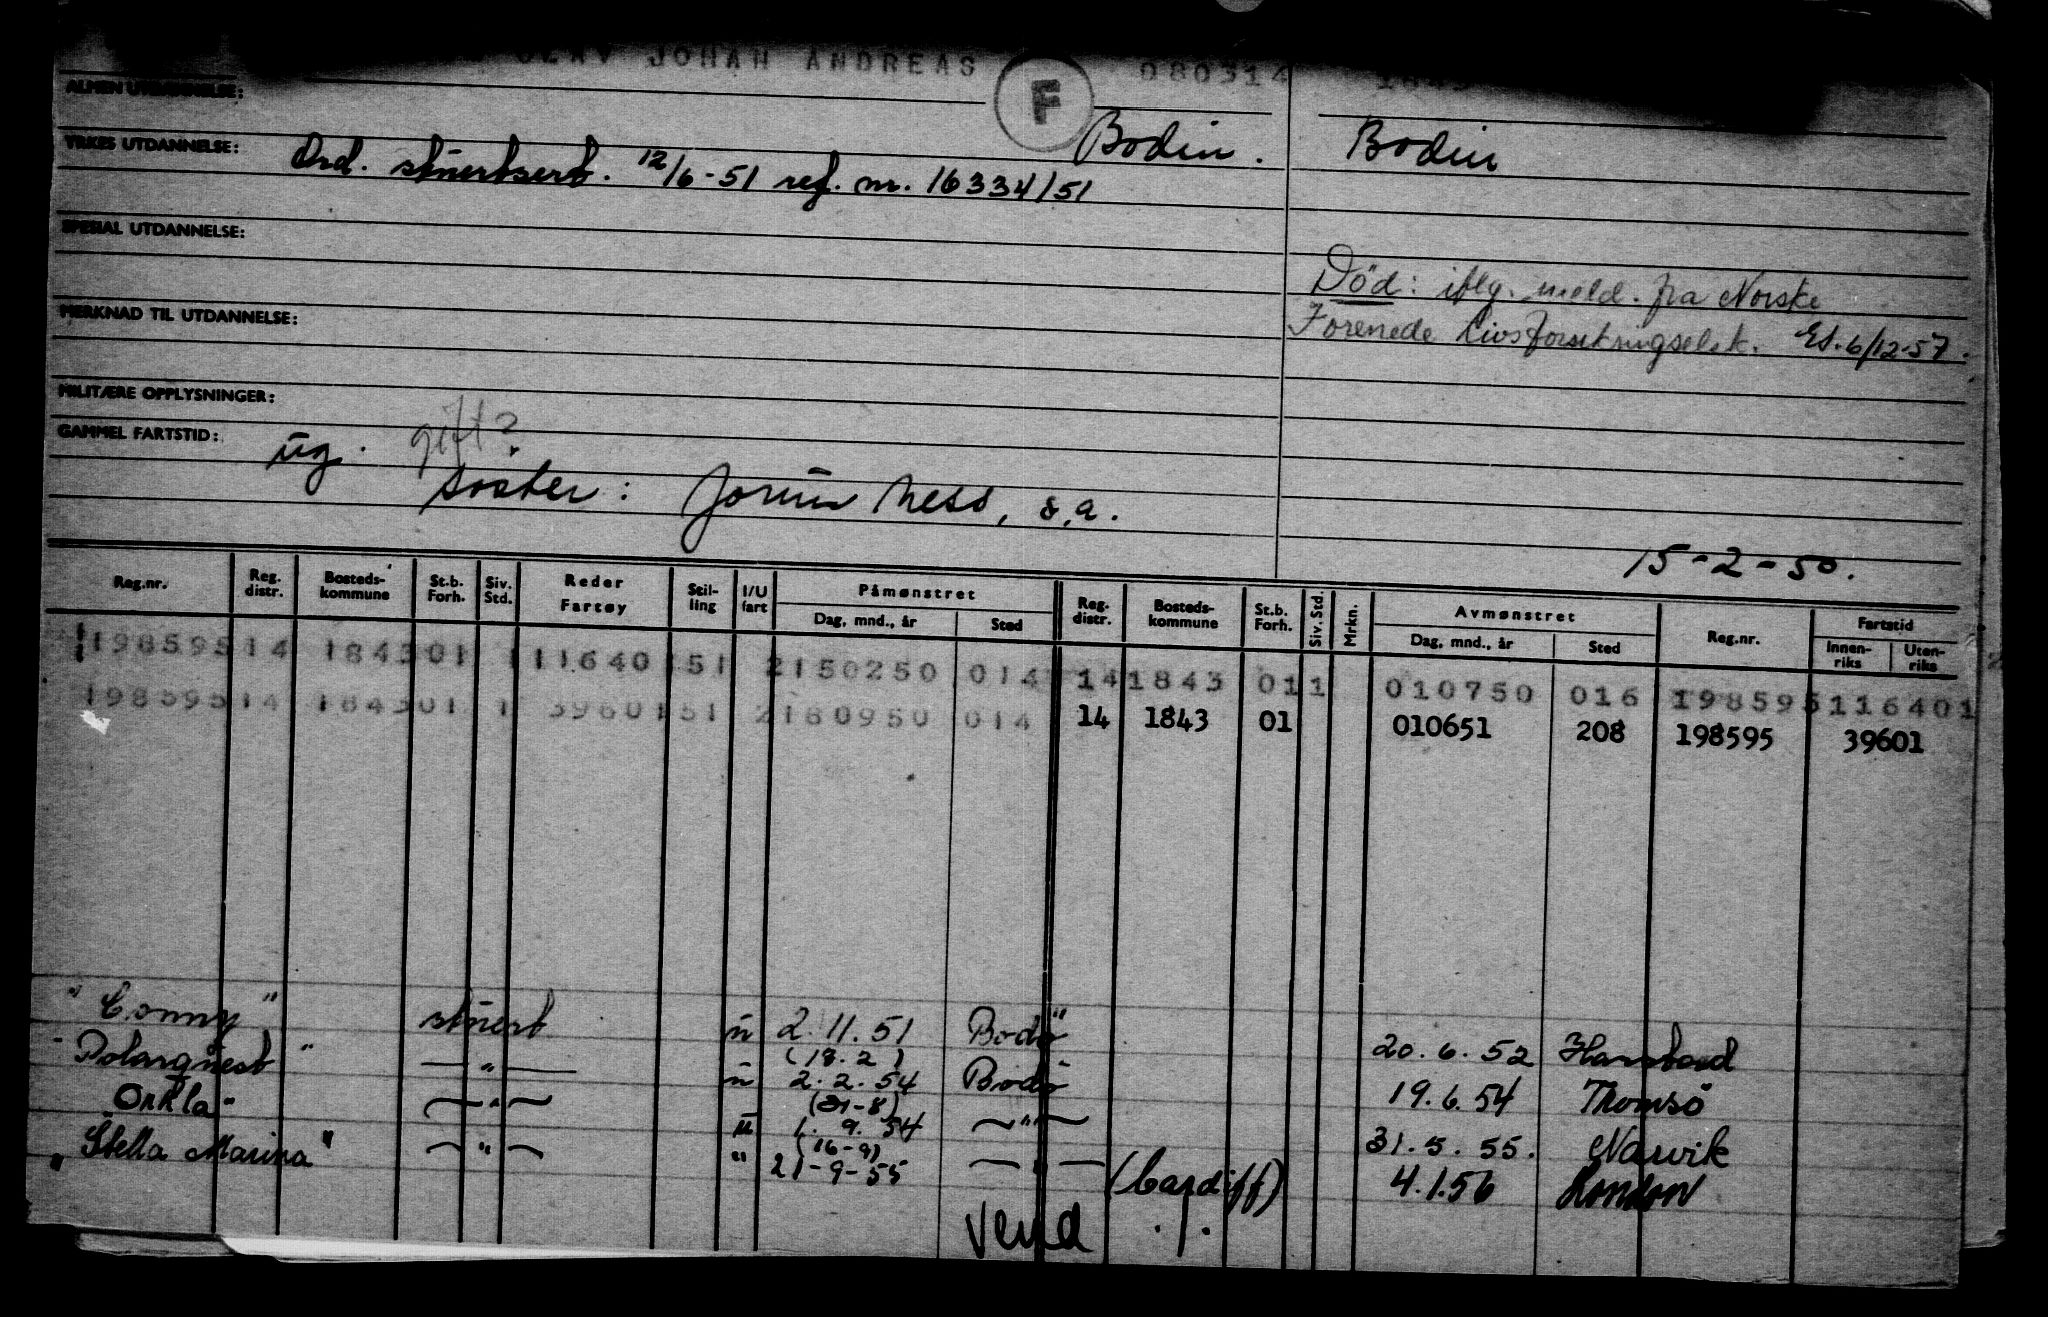 OLAV JOHAN ANDREAS F 080314 1843
ALMEN UTDANNELSE: Bodin. Bodin
YRKES UTDANNELSE: Ord. stuertsert. 12/6-51 ref. nr. 16334/51
SPESIAL UTDANNELSE:
Död: iflg. meld. fra Norske
MERKNAD TIL UTDANNELSE:
Forenede Livsforsikringselsk. 6/12-57.
MILITÆRE OPPLYSNINGER:
GAMMEL FARTSTID: ug. gift?
søster: Jorun Ness, s.a.
15-2-50.
Reg.nr. Reg. distr. Bosteds-kommune St.b. Forh. Siv. Std. Reder Fartøy Stil-ling I/U fart Påmønstret Dag, mnd., år Sted Reg. distr. Bosteds-kommune St.b. Forh. Siv. Std. Mrkn. Avmønstret Dag, mnd., år Sted Reg.nr. Fartstid Innen-riks Uten-riks
198595 14 1843 01 1 11640 151 2 150250 014 14 1843 01 1 010750 016 198595 116401
198595 14 1843 01 1 39601 51 2 180950 014 14 1843 01 010651 208 198595 39601
"Conny" stuert u 2.11.51 Bodø 20.6.52 Harstad
(18.2)
"Polarquest" — " — u 2.2.54 Bodö 19.6.54 Tromsö
(31-8)
Orkla" — " — u 1.9.54 — " — 31.5.55. Narvik
(16-9)
"Stella Marina" — " — " 21-9-55 — " — (Cardiff) 4.1.56 London
Vend ./.